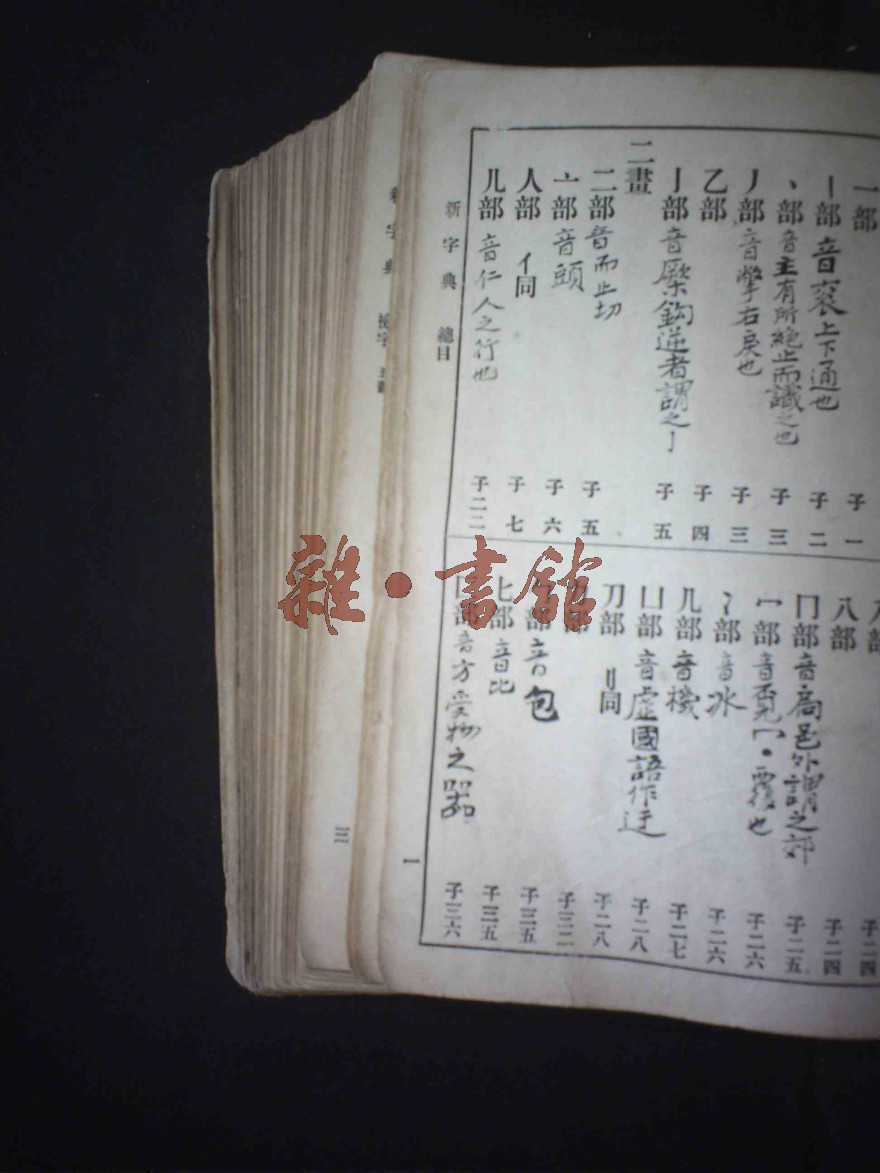 一部 子一
丨部 音衮上下通也 子二
丶部 音主有所絶止而識之也 子三
丿部 音撇右戾也 子三
乙部 子四
亅部 音橜鈎逆者謂之亅 子五
二畫
二部 音而止切 子五
亠部 音頭 子六
人部 亻同 子七
儿部 音仁人之行也 子二二
八部 子二四
冂部 音扃邑外謂之郊 子二五
冖部 音覓冖·覆也 子二六
冫部 音冰 子二六
几部 音機 子二七
凵部 音虚國語作迂 子二八
刀部 刂同 子二八
子三二
部 音包 子三五
匕部 音比 子三五
匚部 音方受物之器 子三六
新字典 總目
一
三
雜·書館